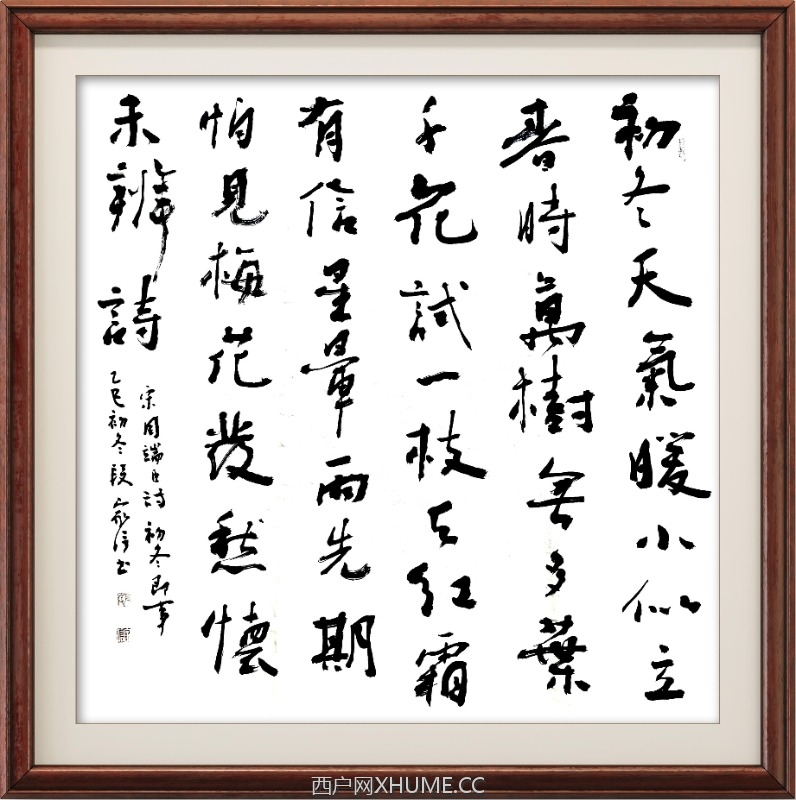 初冬天氣暖小似立
春時萬樹無多葉
千花試一枝云红霜
有信星暈雨先期
怕見梅花發愁懷
未辦詩
宋周端臣詩初冬即事
乙巳初冬段信书
西户网XHUME.CC